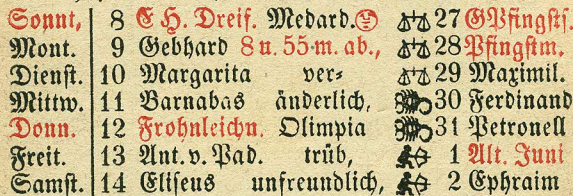 Sonnt. 8 E H. Dreif. Medard. 27 G Pfingsts.
Mont. 9 Gebhard 8 u. 55 m. ab., 28 Pfingstm.
Dienst. 10 Margarita ver- 29 Maximil.
Mittw. 11 Barnabas änderlich, 30 Ferdinand
Donn. 12 Frohnleichn. Olimpia 31 Petronell
Freit. 13 Ant. v. Pad. trüb, 1 Alt. Juni
Samst. 14 Eliseus unfreundlich, 2 Ephraim